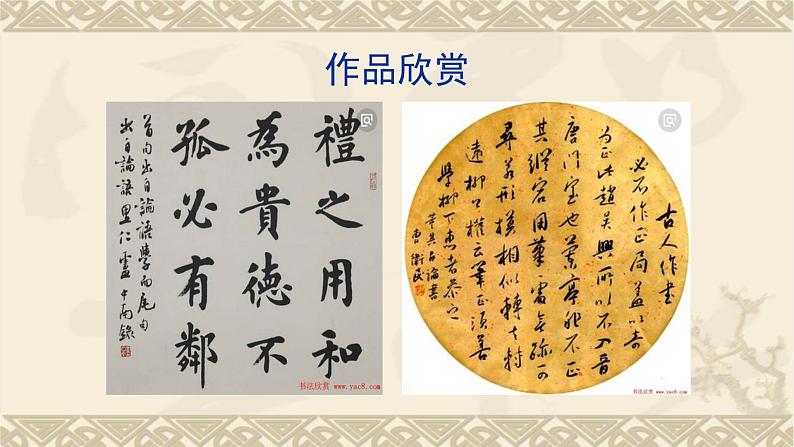 作品欣赏
禮之用和
為貴德不
孤必有鄰
首句出自論語學而尾句
出自論語里仁盧中南錄
书法欣赏
www.yac8.com
古人作書
必不作正局蓋以奇
為正此趙吳興所以不入晉
唐門室也蘭亭非不正
其縱宕用筆處無跡可
尋若形模相似轉去轉
遠柳公權云筆正須善
學柳下惠者參之
董其昌論書
曹衛民
书法欣赏 www.yac8.com